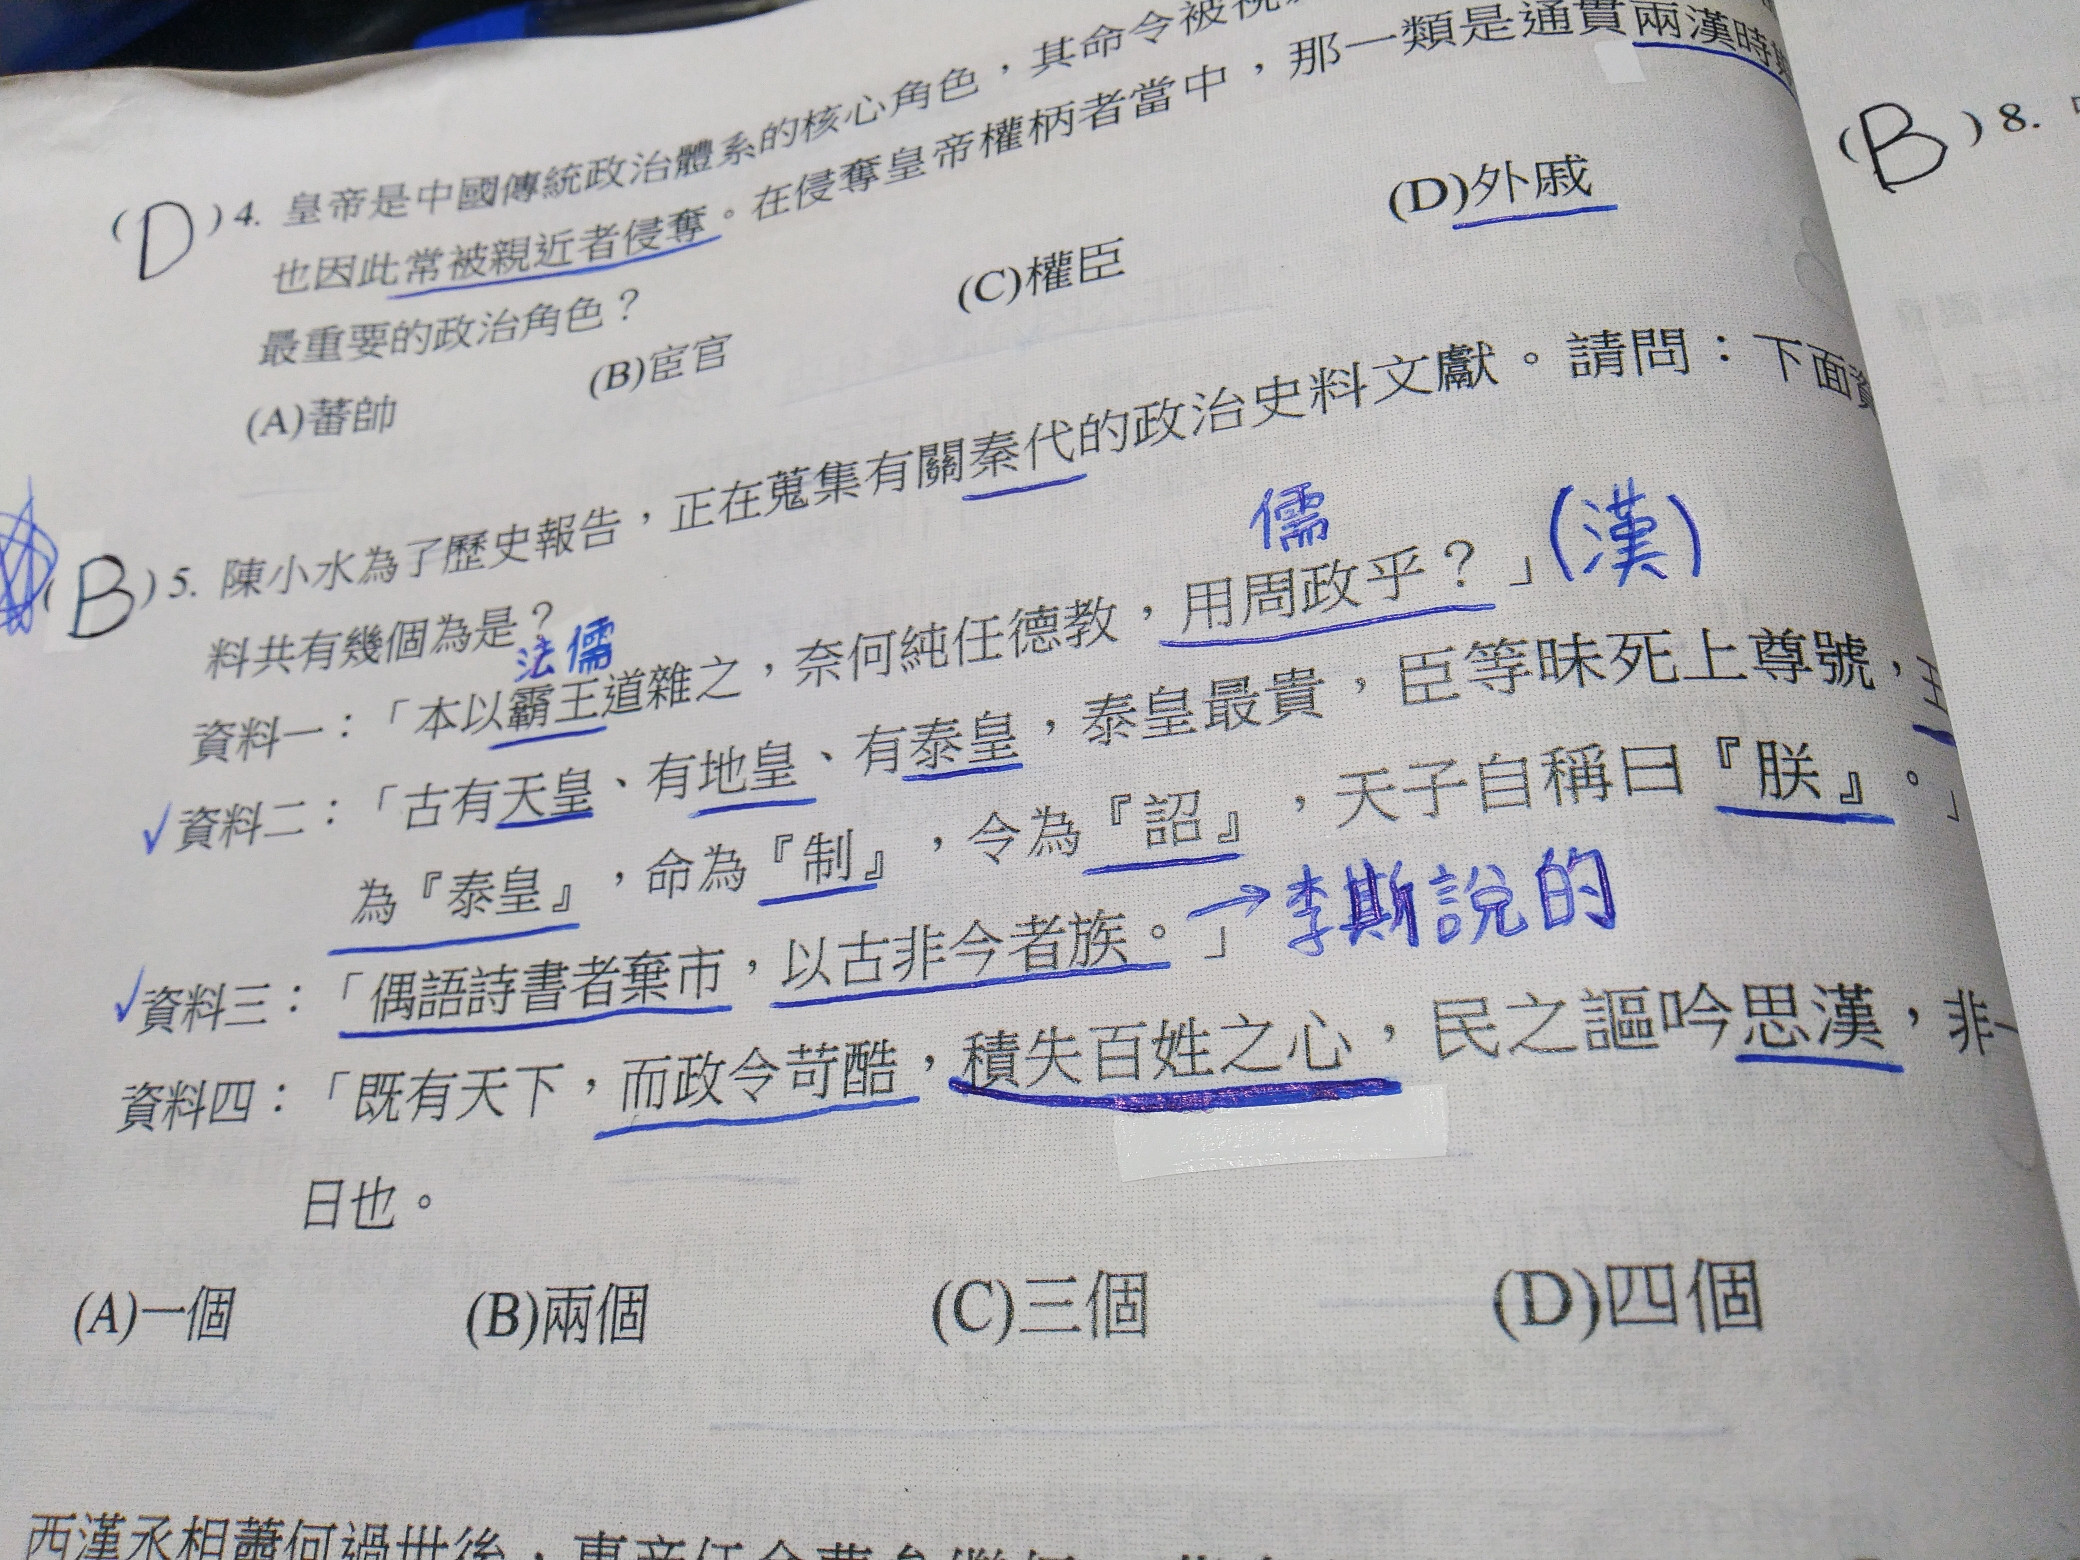 (D)4. 皇帝是中國傳統政治體系的核心角色，其命令被視
也因此常被親近者侵奪。在侵奪皇帝權柄者當中，那一類是通貫兩漢時期
最重要的政治角色？
(A)蕃帥 (B)宦官 (C)權臣 (D)外戚
(B)8.
(B)5. 陳小水為了歷史報告，正在蒐集有關秦代的政治史料文獻。請問：下面資
料共有幾個為是？
法儒
儒
資料一：「本以霸王道雜之，奈何純任德教，用周政乎？」(漢)
✓資料二：「古有天皇、有地皇、有泰皇，泰皇最貴，臣等昧死上尊號，王
為『泰皇』，命為『制』，令為『詔』，天子自稱曰『朕』。」
✓資料三：「偶語詩書者棄市，以古非今者族。」→李斯說的
資料四：「既有天下，而政令苛酷，積失百姓之心，民之謳吟思漢，非一
日也。
(A)一個 (B)兩個 (C)三個 (D)四個
西漢丞相蕭何過世後，